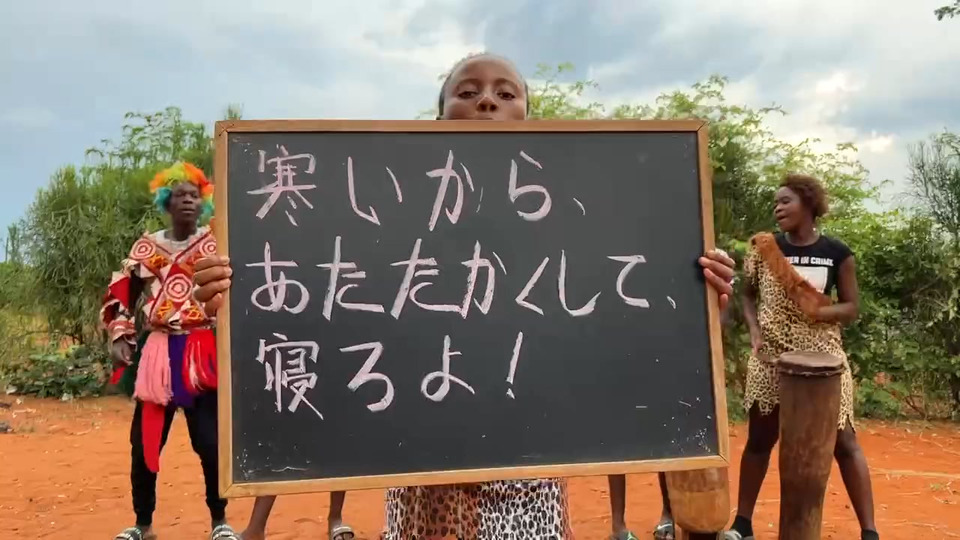 寒いから、
あたたかくして、
寝ろよ！